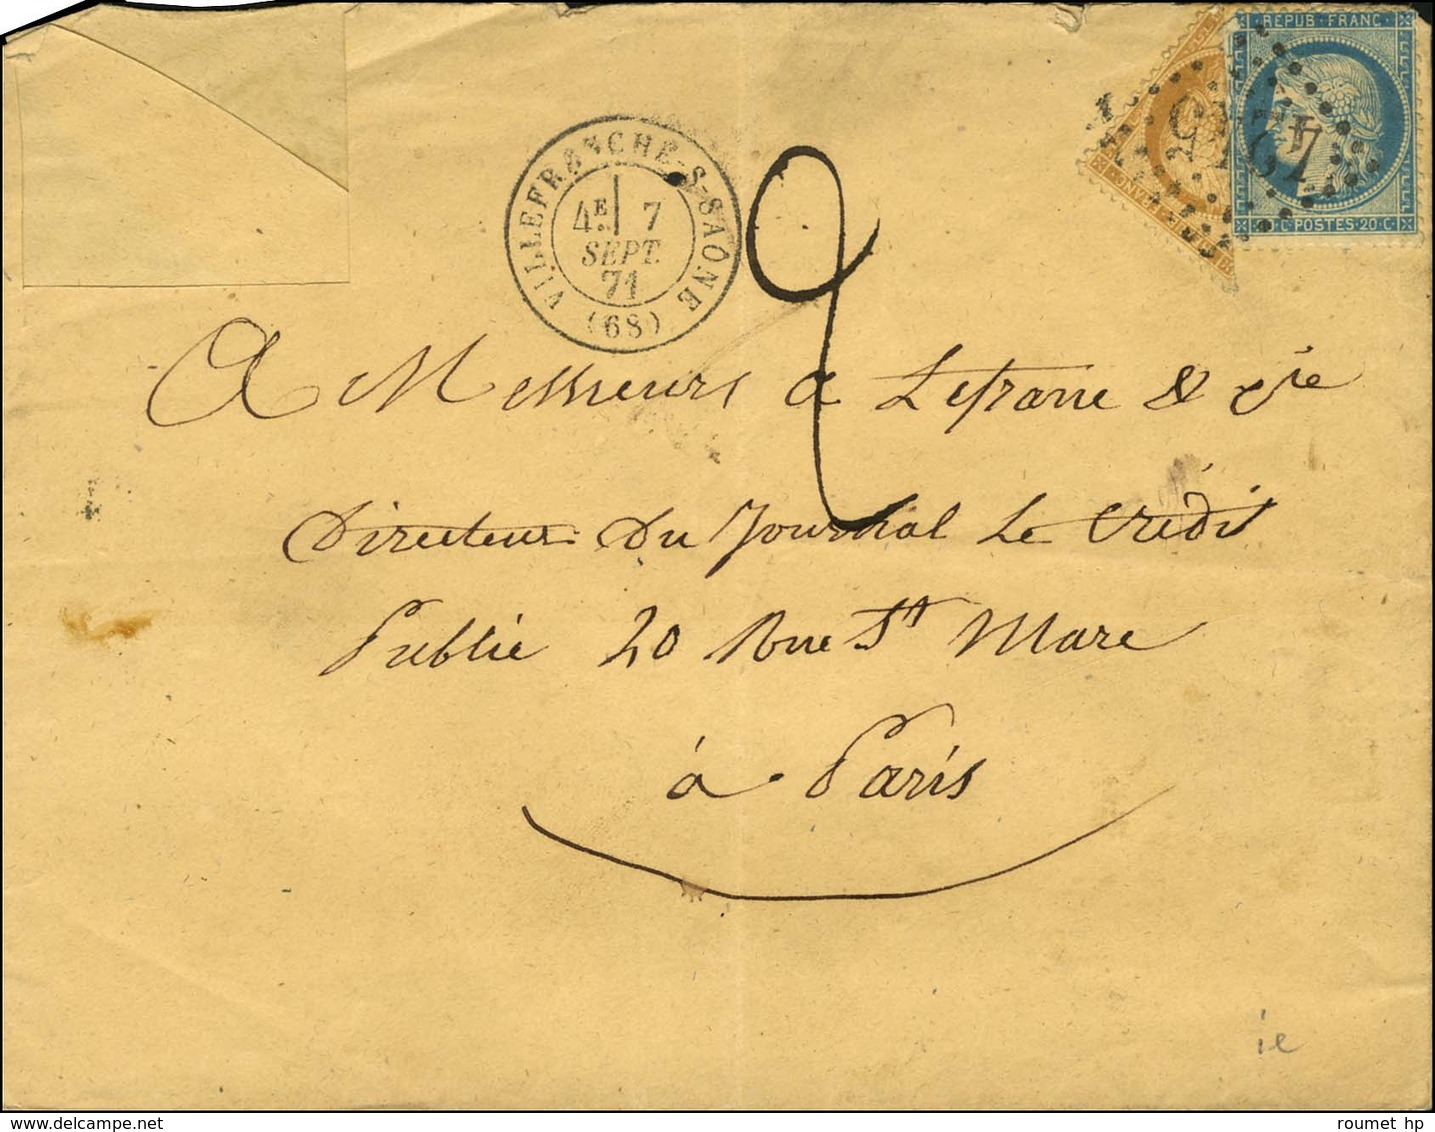 REPUB · FRANC
4245
POSTES · 20 · C
VILLEFRANCHE-S-SAÔNE
4E 7
SEPT.
71
(68)
2
A Messieurs A Lefranc & Cie
Directeur Du Journal Le Crédit
Publié 20 Rue St Marc
à Paris
ie
roumet hp